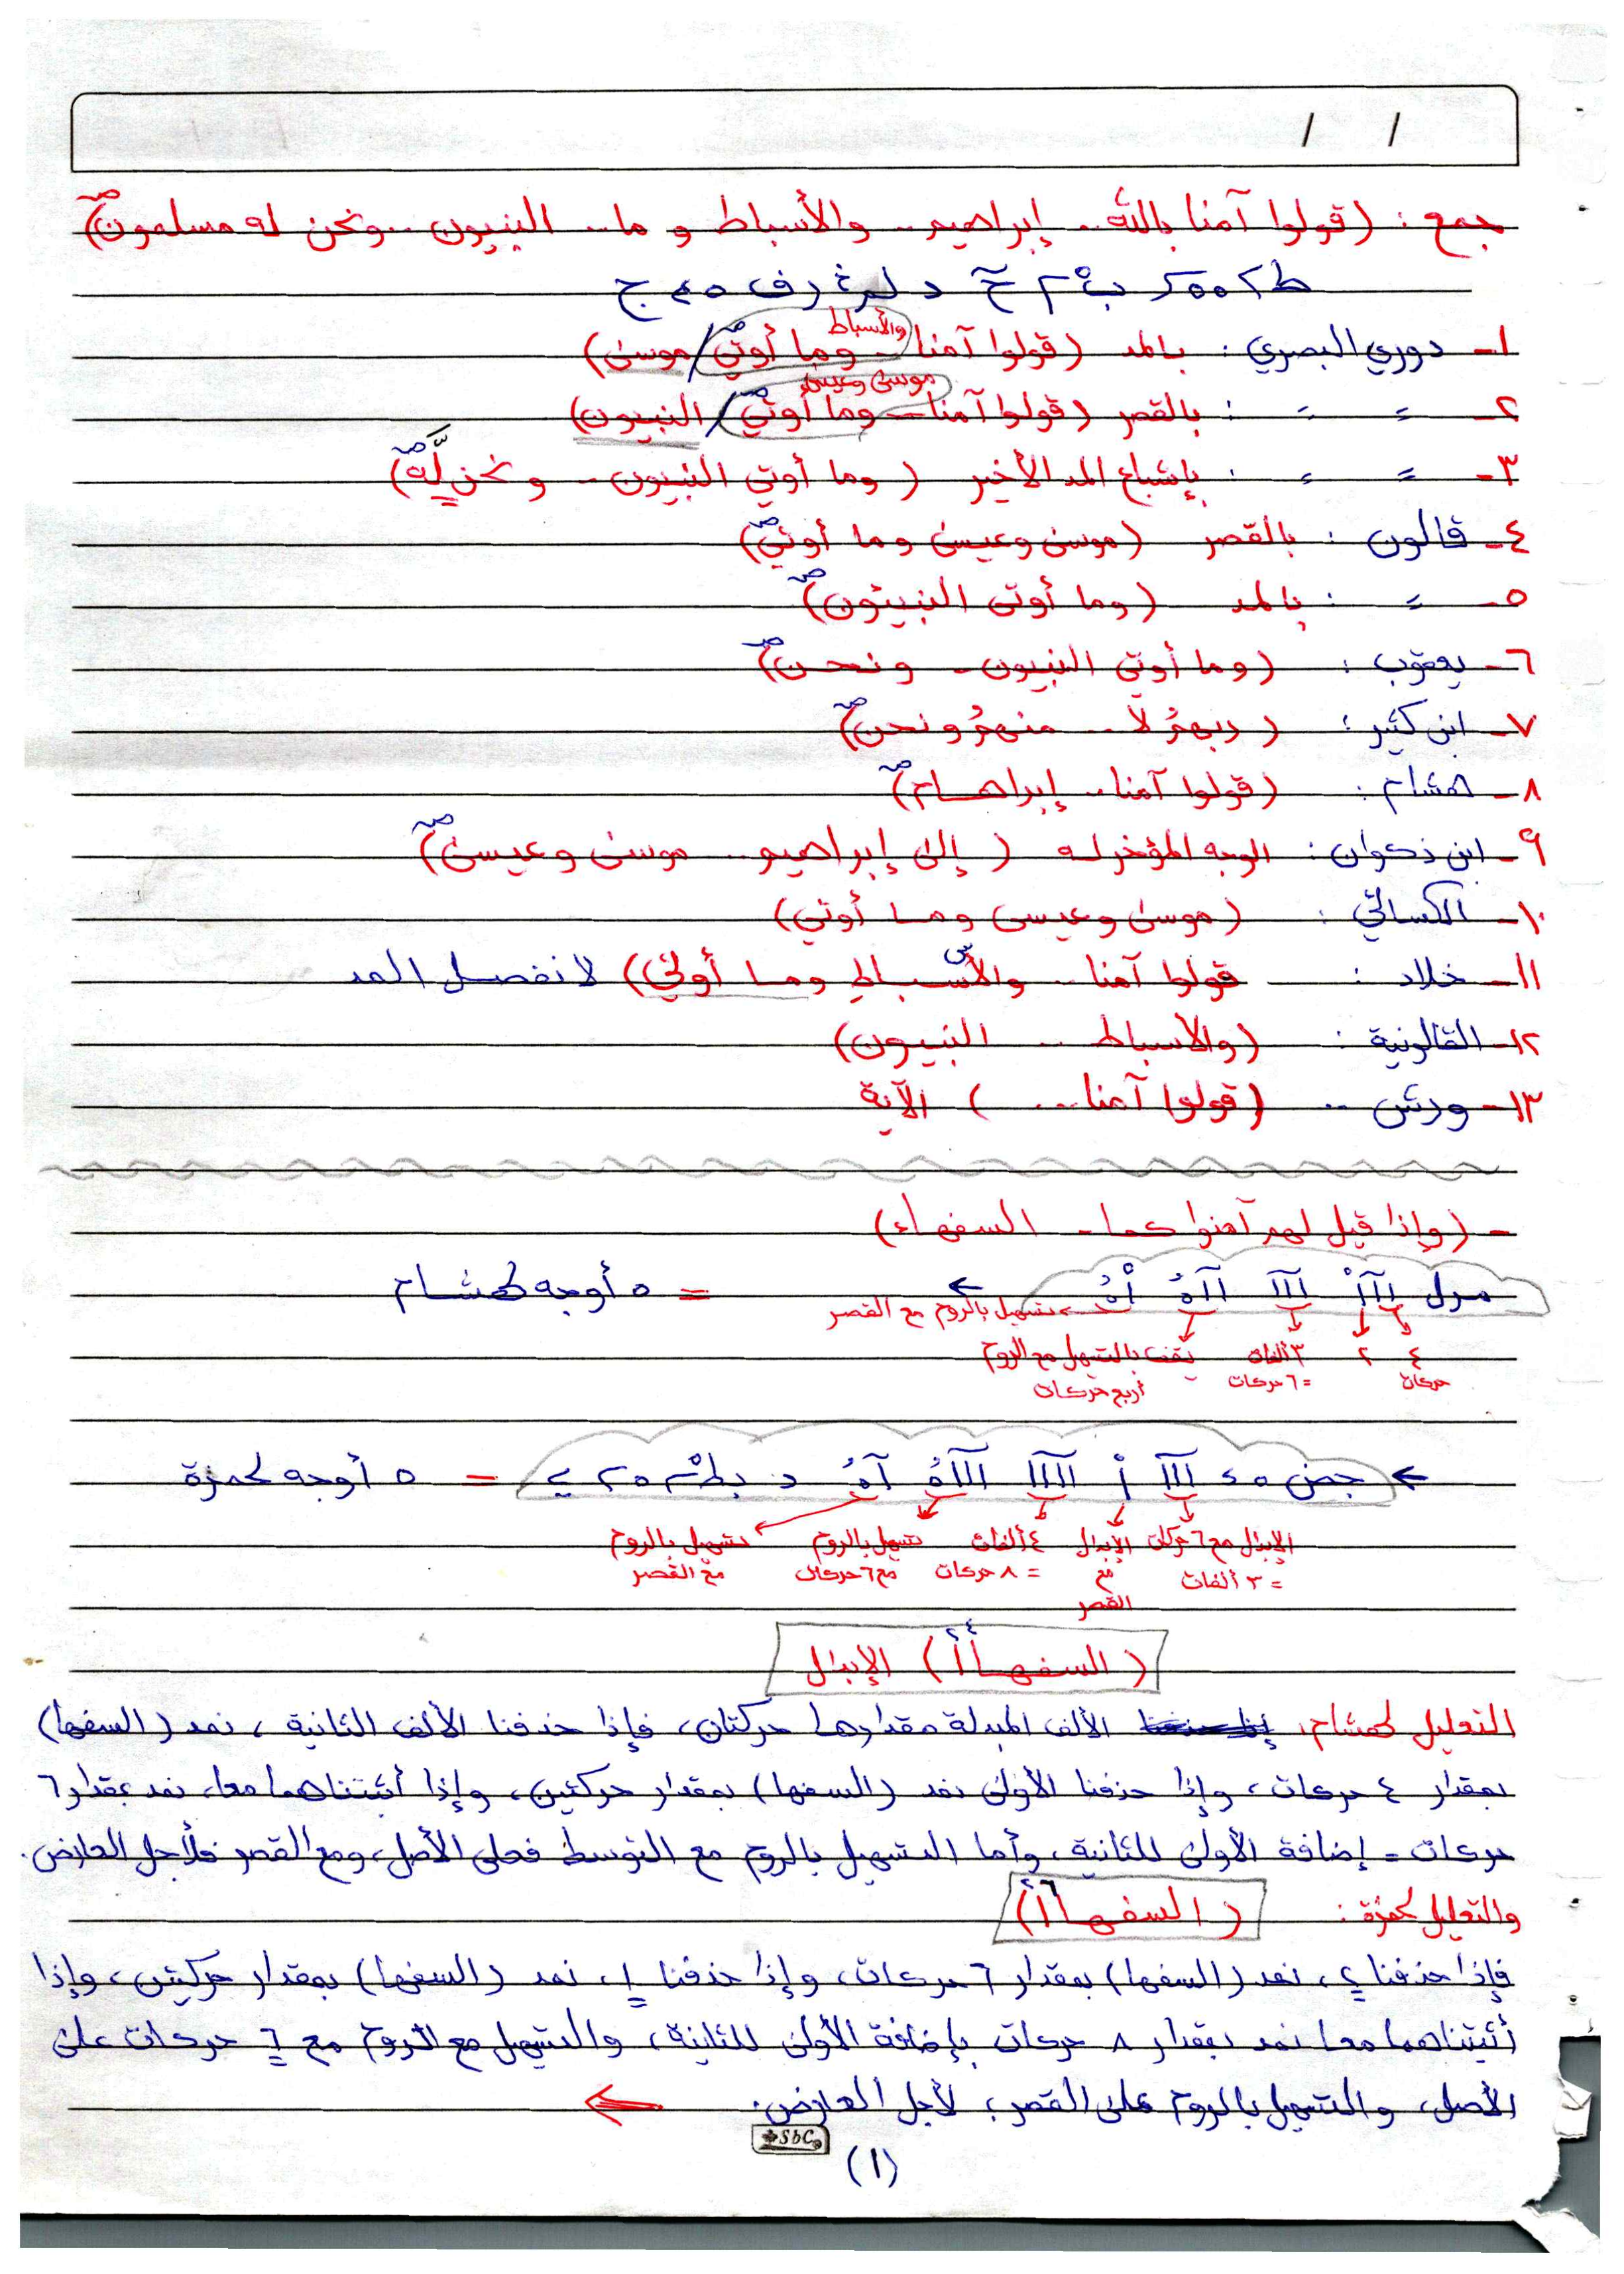 / /
جمع : (قولوا آمنا بالله .. إبراهيم .. والأسباط و ما .. النبيون .. ونحن له مسلمون) صـ
والأسباط
١- دوري البصري : بالمد (قولوا آمنا .. وما أوتي / موسى)
موسى وعيسى
٢- = = : بالقصر (قولوا آمنا .. وما أوتي / النبيون)
٣- = = : بإشباع المد الأخير (وما أوتي النبيون .. ونحن لَّه) صـ
٤- قالون : بالقصر (موسى وعيسى وما أوتي) صـ
٥- = : بالمد (وما أوتى النبيئون) صـ
٦- يعقوب : (وما أوتي النبيون .. ونحن) صـ
٧- ابن كثير : (ربهمُ لا .. منهمُ ونحن) صـ
٨- هشام : (قولوا آمنا .. إبراهام) صـ
٩- ابن ذكوان : الوجه المؤخر له (إلى إبراهيم .. موسى وعيسى) صـ
١٠- الكسائي : (موسى وعيسى وما أوتي)
١١- خلاد : قولوا آمنا .. والأسباط وما أوتي) لانفصل المد
١٢- القالونية : (والأسباط .. النبيون)
١٣- ورش .. (قولوا آمنا ...) الآية
- (وإذا قيل لهم آمنوا كما - السفهاء)
= ٥ أوجه لهشام
تسهيل بالروم مع القصر
٤ حركات ٢ ٣ ألفات = ٦ حركات يقف بالتسهيل مع الروم أربع حركات
= ٥ أوجه لحمزة
الإبدال مع ٦ حركات = ٣ ألفات الإبدال مع القصر ٤ ألفات = ٨ حركات تسهيل بالروم مع ٦ حركات تسهيل بالروم مع القصر
(السفهاأ) الإبدال
التعليل لهشام: الألف المبدلة مقدارها حركتان، فإذا حذفنا الألف الثانية، نمد (السفها)
بمقدار ٤ حركات، وإذا حذفنا الأولى نمد (السفها) بمقدار حركتين، وإذا أثبتناهما معا، نمد بمقدار ٦
حركات = إضافة الأولى للثانية، وأما التسهيل بالروم مع التوسط فعلى الأصل، ومع القصر فلأجل العارض.
والتعليل لحمزة : (السفهاأ)
فإذا حذفنا ٢، نمد (السفها) بمقدار ٦ حركات، وإذا حذفنا ١، نمد (السفها) بمقدار حركتين، وإذا
أثبتناهما معا نمد بمقدار ٨ حركات بإضافة الأولى للثانية، والتسهيل مع الروم مع ٦ حركات على
الأصل، والتسهيل بالروم على القصر؛ لأجل العارض.
SbC
(١)